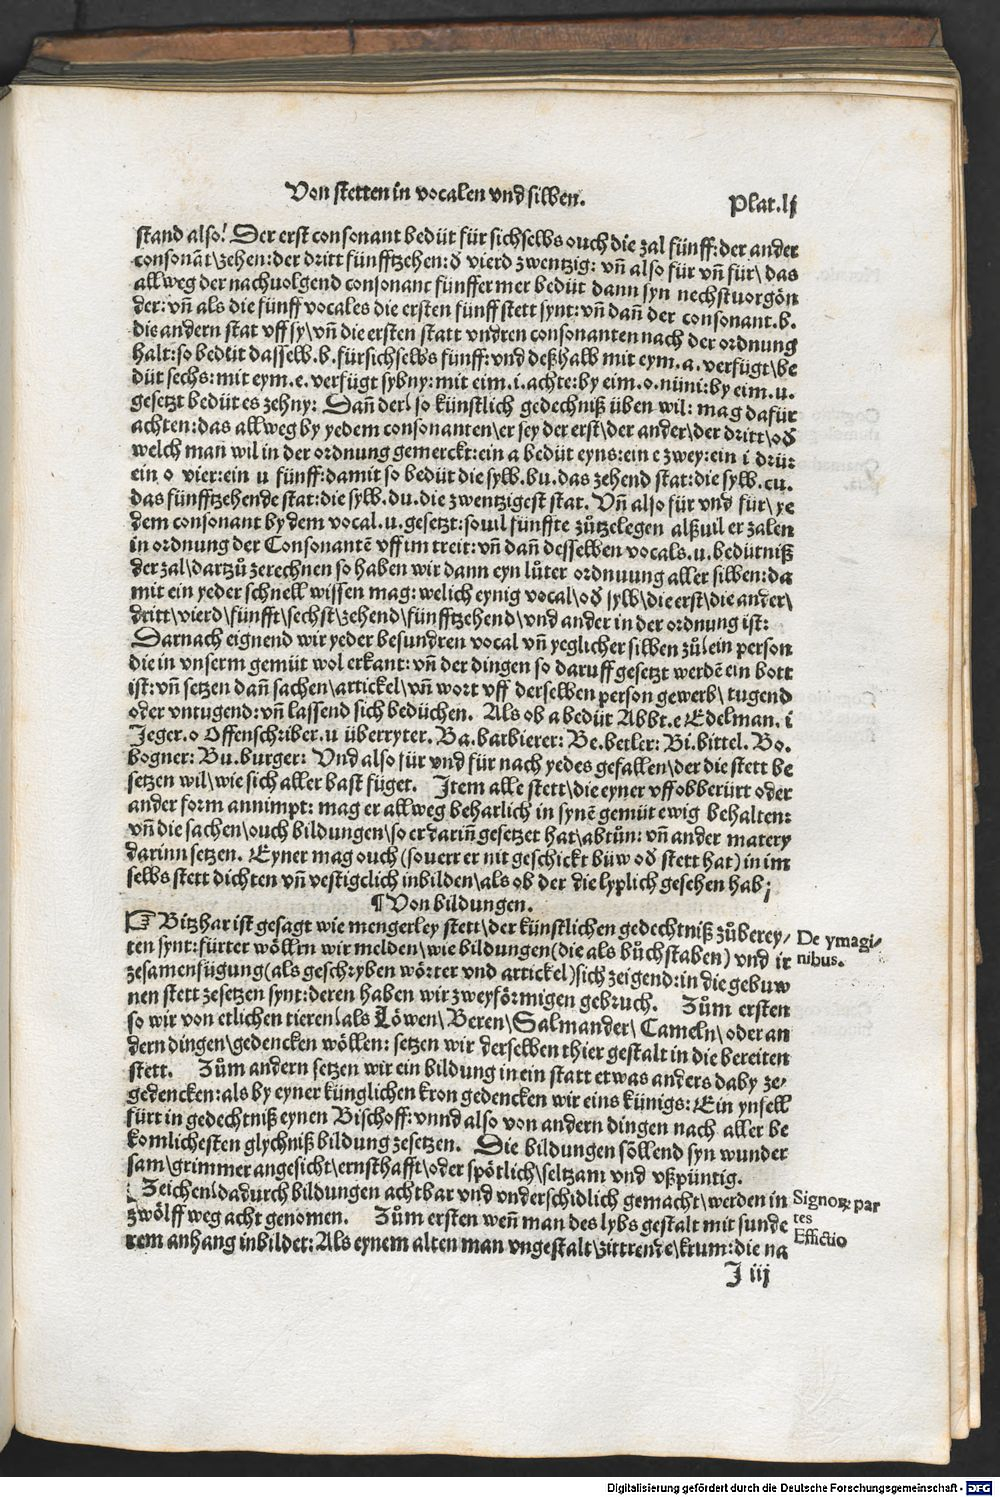 Von stetten in vocalen vnd silben.
Plat.lj
stand also! Der erst consonant bedüt für sichselbs ouch die zal fünff: der ander
consonāt\ zehen: der dritt fünfftzehen: đ vierd zwentzig: vn̄ also für vn̄ für\ das
allweg der nachuolgend consonant fünffer mer bedüt dann syn nechstuorgön
der: vn̄ als die fünff vocales die ersten fünff stett synt: vn̄ dan̄ der consonant .b.
die andern stat vff sy\ vn̄ die ersten statt vndren consonanten nach der ordnung
halt: so bedüt dasselb .b. fürsichselbs fünff: vnd deßhalb mit eym .a. verfügt\ be
düt sechs: mit eym .e. verfügt sybny: mit eim .i. achte: by eim .o. nüni: by eim .u.
gesetzt bedüt es zehny: Dan̄ der\ so künstlich gedechniß üben wil: mag dafür
achten: das allweg by yedem consonanten\ er sey der erst\ der ander\ der dritt\ ođ
welch man wil in der ordnung gemerckt: ein a bedüt eyns: ein e zwey: ein i drü:
ein o vier: ein u fünff: damit so bedüt die sylb .bu. das zehend stat: die sylb .cu.
das fünfftzehende stat: die sylb .du. die zwentzigest stat. Vn̄ also für vnd für\ ye
dem consonant by dem vocal .u. gesetzt: souil fünffte zůtzelegen alßuil er zalen
in ordnung der Consonantē vff im treit: vn̄ dan̄ desselben vocals .u. bedütniß
der zal\ dartzů zerechnen so haben wir dann eyn lůter ordnuung aller silben: da
mit ein yeder schnell wissen mag: welich eynig vocal\ ođ sylb\ die erst\ die ander\
dritt\ vierd\ fünfft\ sechst\ zehend\ fünfftzehend\ vnd ander in der ordnung ist:
Darnach eignend wir yeder besundren vocal vn̄ yeglicher silben zů\ ein person
die in vnserm gemüt wol erkant: vn̄ der dingen so daruff gesetzt werdē ein bott
ist: vn̄ setzen dan̄ sachen\ artickel\ vn̄ wort vff derselben person gewerb\ tugend
oder vntugend: vn̄ lassend sich bedüchen. Als ob a bedüt Abbt. e Edelman. i
Jeger. o Offenschriber. u überryter. Ba. barbierer: Be. betler: Bi. bittel. Bo.
bogner: Bu. burger: Vnd also für vnd für nach yedes gefallen\ der die stett be
setzen wil\ wie sich aller bast füget. Item alle stett\ die eyner vff obberürt oder
ander form annimpt: mag er allweg beharlich in synē gemüt ewig behalten:
vn̄ die sachen\ ouch bildungen\ so er darin̄ gesetzet hat\ abtůn: vn̄ ander matery
darinn setzen. Eyner mag ouch (so uerr er nit geschickt büw ođ stett hat) in im
selbs stett dichten vn̄ vestigclich inbilden\ als ob der die lyplich gesehen hab;
¶ Von bildungen.
☞ Bitzhar ist gesagt wie mengerley stett\ der künstlichen gedechtniß zůberey/
ten synt: fürter wöllen wir melden\ wie bildungen (die als bůchstaben) vnd ir
zesamenfügung (als geschryben wörter vnd artickel) sich zeigend: in die gebuw
nen stett zesetzen synt: deren haben wir zweyförmigen gebruch. Zům ersten
so wir von etlichen tieren\ als Löwen\ Beren\ Salmander\ Cameln\ oder an
dern dingen\ gedencken wöllen: setzen wir derselben thier gestalt in die bereiten
stett. Zům andern setzen wir ein bildung in ein statt etwas anders daby ze/
gedencken: als by eyner künglichen kron gedencken wir eins künigs: Ein ynfell
fürt in gedechtniß eynen Bischoff: vnnd also von andern dingen nach aller be
komlichesten glychniß bildung zesetzen. Die bildungen söllend syn wunder
sam\ grimmer angesicht\ ernsthafft\ oder spötlich\ seltzam vnd vßpüntig.
Zeichen\ dadurch bildungen achtbar vnd vnderschidlich gemacht\ werden in
zwölff weg acht genomen. Zům ersten wen̄ man des lybs gestalt mit sunde
rem anhang inbildet: Als eynem alten man vngestalt\ zittrende\ krum: die na
De ymagi-
nibus.
Signoꝝ par
tes
Effictio
J iij
Digitalisierung gefördert durch die Deutsche Forschungsgemeinschaft - DFG